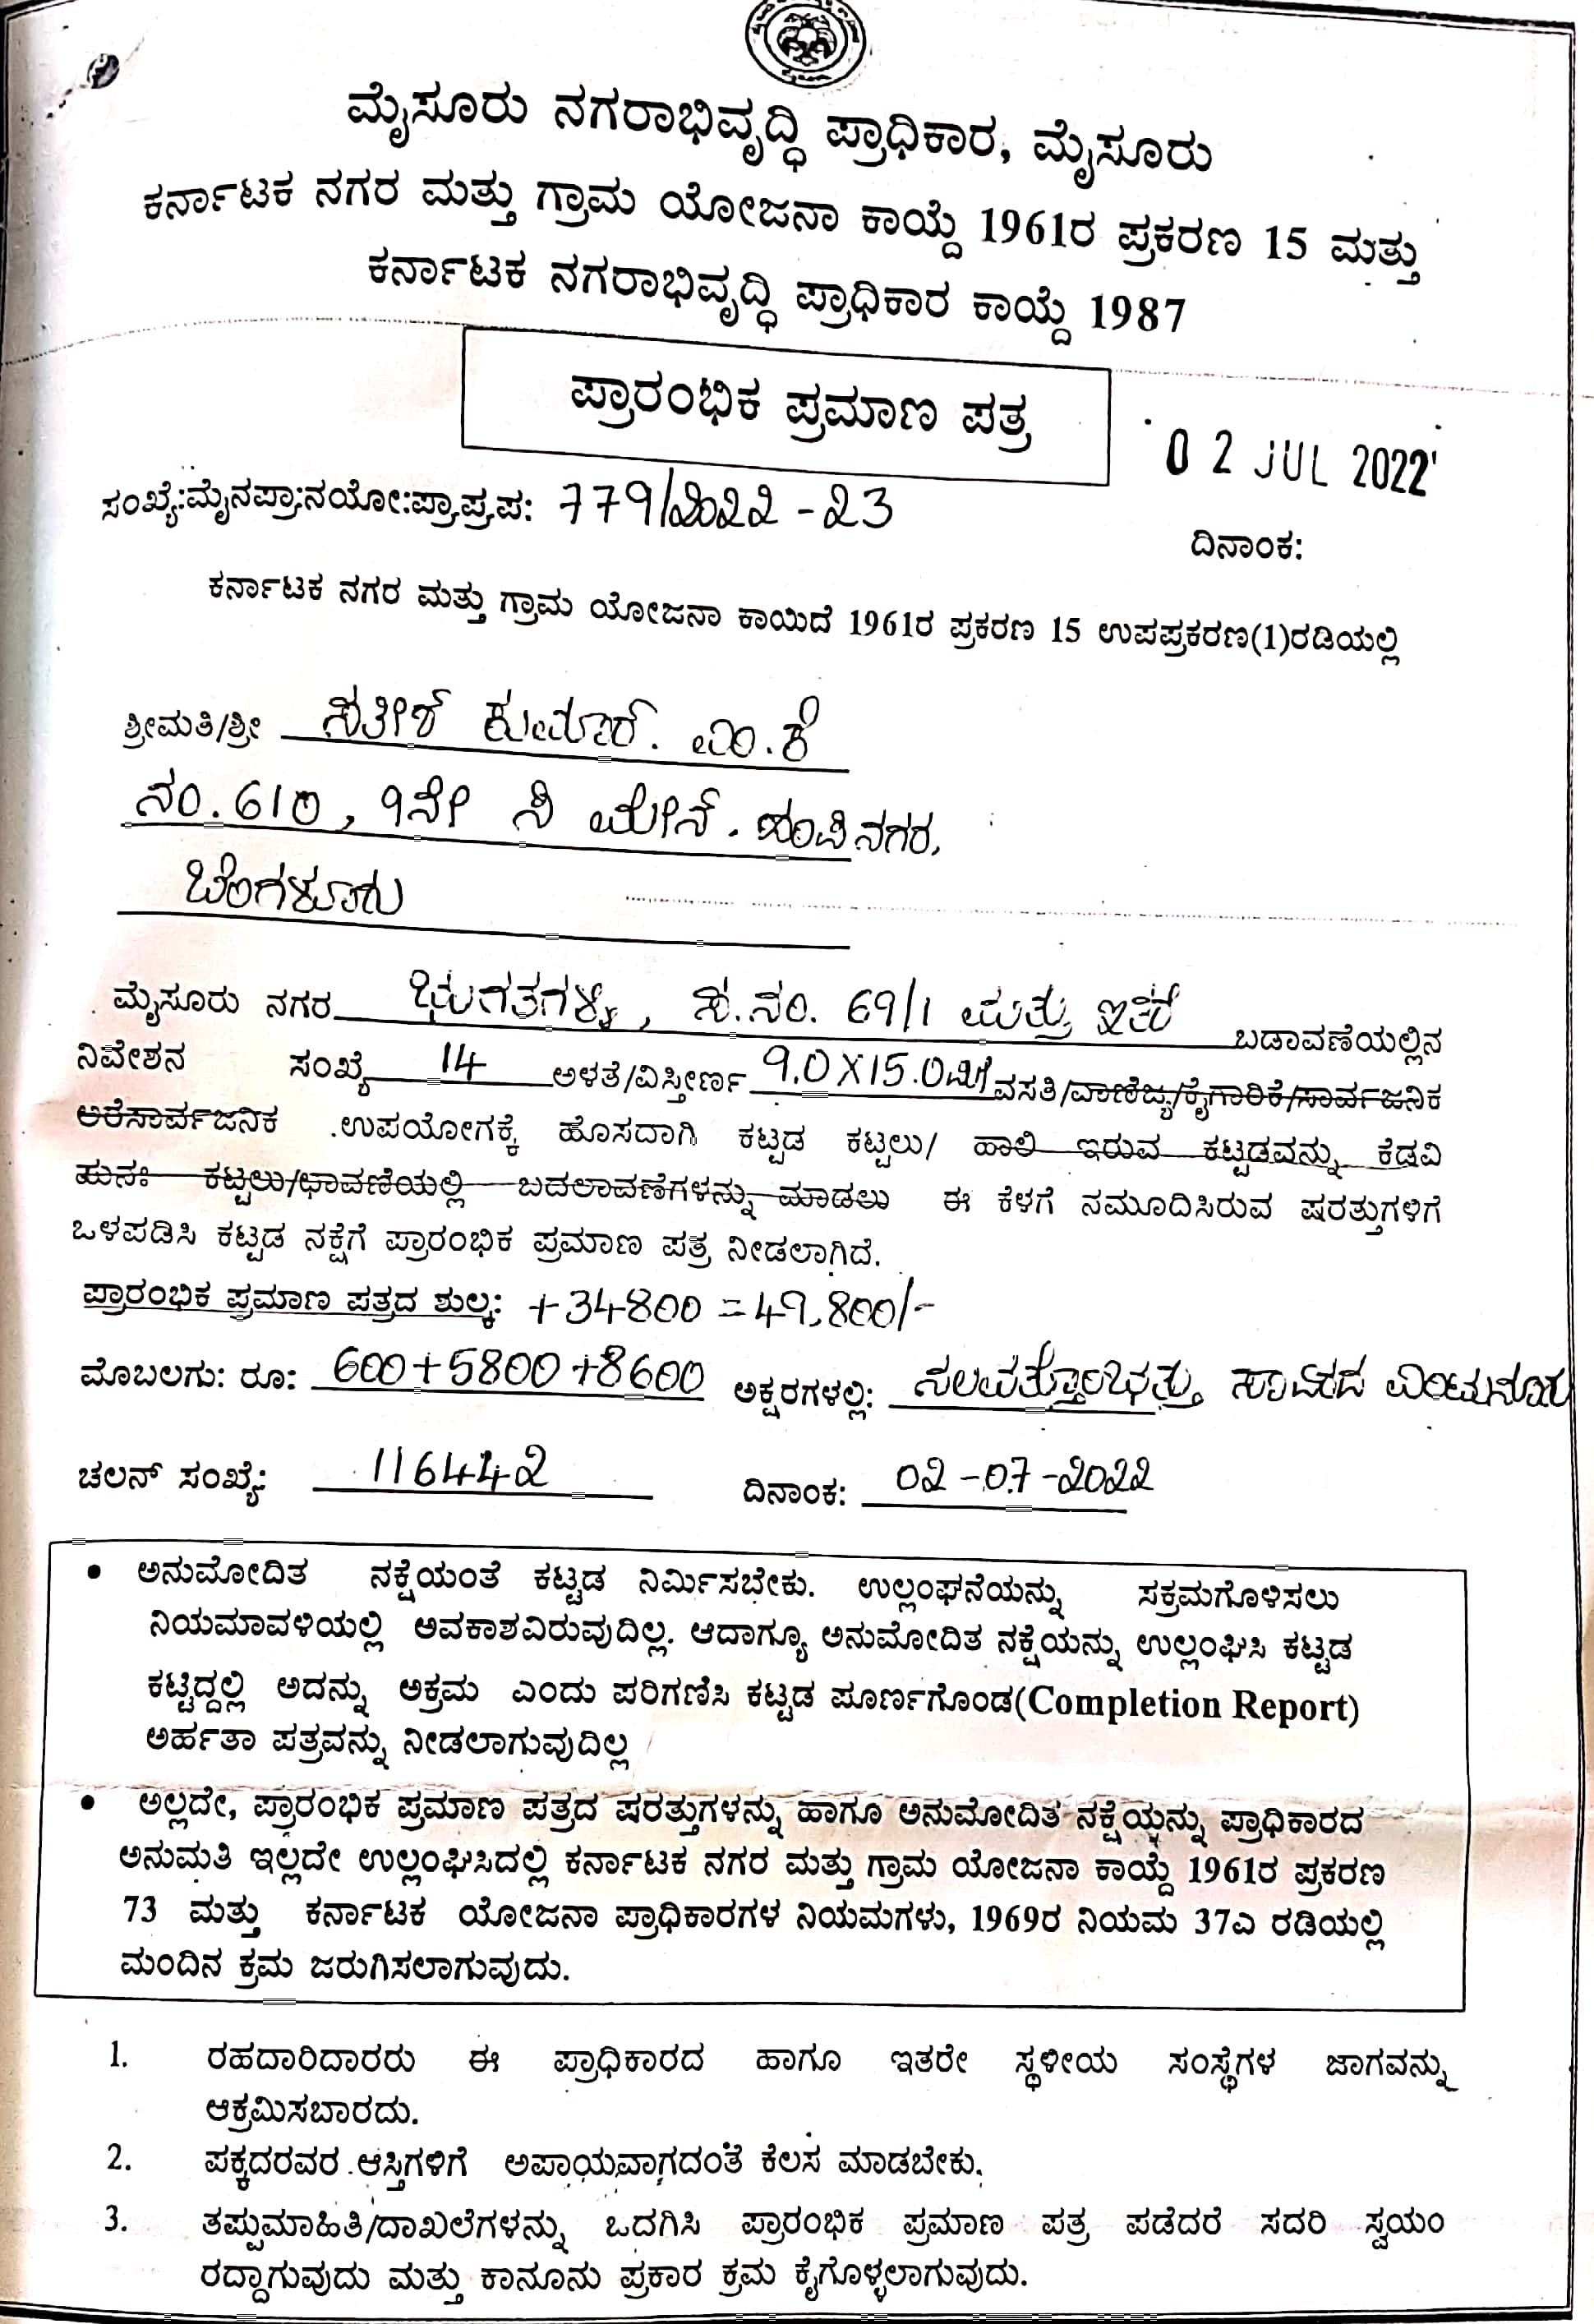 ಮೈಸೂರು ನಗರಾಭಿವೃದ್ಧಿ ಪ್ರಾಧಿಕಾರ, ಮೈಸೂರು
ಕರ್ನಾಟಕ ನಗರ ಮತ್ತು ಗ್ರಾಮ ಯೋಜನಾ ಕಾಯ್ದೆ 1961ರ ಪ್ರಕರಣ 15 ಮತ್ತು
ಕರ್ನಾಟಕ ನಗರಾಭಿವೃದ್ಧಿ ಪ್ರಾಧಿಕಾರ ಕಾಯ್ದೆ 1987
ಪ್ರಾರಂಭಿಕ ಪ್ರಮಾಣ ಪತ್ರ
02 JUL 2022
ಸಂಖ್ಯೆ:ಮೈನಪ್ರಾ:ನಯೋ:ಪ್ರಾ.ಪ್ರ.ಪ: 779/2022-23
ದಿನಾಂಕ:
ಕರ್ನಾಟಕ ನಗರ ಮತ್ತು ಗ್ರಾಮ ಯೋಜನಾ ಕಾಯಿದೆ 1961ರ ಪ್ರಕರಣ 15 ಉಪಪ್ರಕರಣ(1)ರಡಿಯಲ್ಲಿ
ಶ್ರೀಮತಿ/ಶ್ರೀ ಸತೀಶ್ ಕುಮಾರ್. ಎಂ.ಕೆ
ನಂ.610, 9ನೇ ಸಿ ಮೇನ್. ಹಂಪಿನಗರ,
ಬೆಂಗಳೂರು
ಮೈಸೂರು ನಗರ ಭುಗತಗಳ್ಳಿ, ಸ.ನಂ. 69/1 ಮತ್ತು ಇತರೆ ಬಡಾವಣೆಯಲ್ಲಿನ
ನಿವೇಶನ ಸಂಖ್ಯೆ 14 ಅಳತೆ/ವಿಸ್ತೀರ್ಣ 9.0X15.0ಮೀ ವಸತಿ/ವಾಣಿಜ್ಯ/ಕೈಗಾರಿಕೆ/ಸಾರ್ವಜನಿಕ
ಅರೆಸಾರ್ವಜನಿಕ ಉಪಯೋಗಕ್ಕೆ ಹೊಸದಾಗಿ ಕಟ್ಟಡ ಕಟ್ಟಲು/ ಹಾಲಿ ಇರುವ ಕಟ್ಟಡವನ್ನು ಕೆಡವಿ
ಪುನಃ ಕಟ್ಟಲು/ಛಾವಣಿಯಲ್ಲಿ ಬದಲಾವಣೆಗಳನ್ನು ಮಾಡಲು ಈ ಕೆಳಗೆ ನಮೂದಿಸಿರುವ ಷರತ್ತುಗಳಿಗೆ
ಒಳಪಡಿಸಿ ಕಟ್ಟಡ ನಕ್ಷೆಗೆ ಪ್ರಾರಂಭಿಕ ಪ್ರಮಾಣ ಪತ್ರ ನೀಡಲಾಗಿದೆ.
ಪ್ರಾರಂಭಿಕ ಪ್ರಮಾಣ ಪತ್ರದ ಶುಲ್ಕ: +34800 =49,800/-
ಮೊಬಲಗು: ರೂ: 600+5800+8600 ಅಕ್ಷರಗಳಲ್ಲಿ: ನಲವತ್ತೊಂಭತ್ತು ಸಾವಿರದ ಎಂಟುನೂರು
ಚಲನ್ ಸಂಖ್ಯೆ: 116442 ದಿನಾಂಕ: 02-07-2022
• ಅನುಮೋದಿತ ನಕ್ಷೆಯಂತೆ ಕಟ್ಟಡ ನಿರ್ಮಿಸಬೇಕು. ಉಲ್ಲಂಘನೆಯನ್ನು ಸಕ್ರಮಗೊಳಿಸಲು
ನಿಯಮಾವಳಿಯಲ್ಲಿ ಅವಕಾಶವಿರುವುದಿಲ್ಲ. ಆದಾಗ್ಯೂ ಅನುಮೋದಿತ ನಕ್ಷೆಯನ್ನು ಉಲ್ಲಂಘಿಸಿ ಕಟ್ಟಡ
ಕಟ್ಟಿದ್ದಲ್ಲಿ ಅದನ್ನು ಅಕ್ರಮ ಎಂದು ಪರಿಗಣಿಸಿ ಕಟ್ಟಡ ಪೂರ್ಣಗೊಂಡ(Completion Report)
ಅರ್ಹತಾ ಪತ್ರವನ್ನು ನೀಡಲಾಗುವುದಿಲ್ಲ
• ಅಲ್ಲದೇ, ಪ್ರಾರಂಭಿಕ ಪ್ರಮಾಣ ಪತ್ರದ ಷರತ್ತುಗಳನ್ನು ಹಾಗೂ ಅನುಮೋದಿತ ನಕ್ಷೆಯನ್ನು ಪ್ರಾಧಿಕಾರದ
ಅನುಮತಿ ಇಲ್ಲದೇ ಉಲ್ಲಂಘಿಸಿದಲ್ಲಿ ಕರ್ನಾಟಕ ನಗರ ಮತ್ತು ಗ್ರಾಮ ಯೋಜನಾ ಕಾಯ್ದೆ 1961ರ ಪ್ರಕರಣ
73 ಮತ್ತು ಕರ್ನಾಟಕ ಯೋಜನಾ ಪ್ರಾಧಿಕಾರಗಳ ನಿಯಮಗಳು, 1969ರ ನಿಯಮ 37ಎ ರಡಿಯಲ್ಲಿ
ಮಂದಿನ ಕ್ರಮ ಜರುಗಿಸಲಾಗುವುದು.
1. ರಹದಾರಿದಾರರು ಈ ಪ್ರಾಧಿಕಾರದ ಹಾಗೂ ಇತರೇ ಸ್ಥಳೀಯ ಸಂಸ್ಥೆಗಳ ಜಾಗವನ್ನು
ಆಕ್ರಮಿಸಬಾರದು.
2. ಪಕ್ಕದರವರ ಆಸ್ತಿಗಳಿಗೆ ಅಪಾಯವಾಗದಂತೆ ಕೆಲಸ ಮಾಡಬೇಕು.
3. ತಪ್ಪುಮಾಹಿತಿ/ದಾಖಲೆಗಳನ್ನು ಒದಗಿಸಿ ಪ್ರಾರಂಭಿಕ ಪ್ರಮಾಣ ಪತ್ರ ಪಡೆದರೆ ಸದರಿ ಸ್ವಯಂ
ರದ್ದಾಗುವುದು ಮತ್ತು ಕಾನೂನು ಪ್ರಕಾರ ಕ್ರಮ ಕೈಗೊಳ್ಳಲಾಗುವುದು.